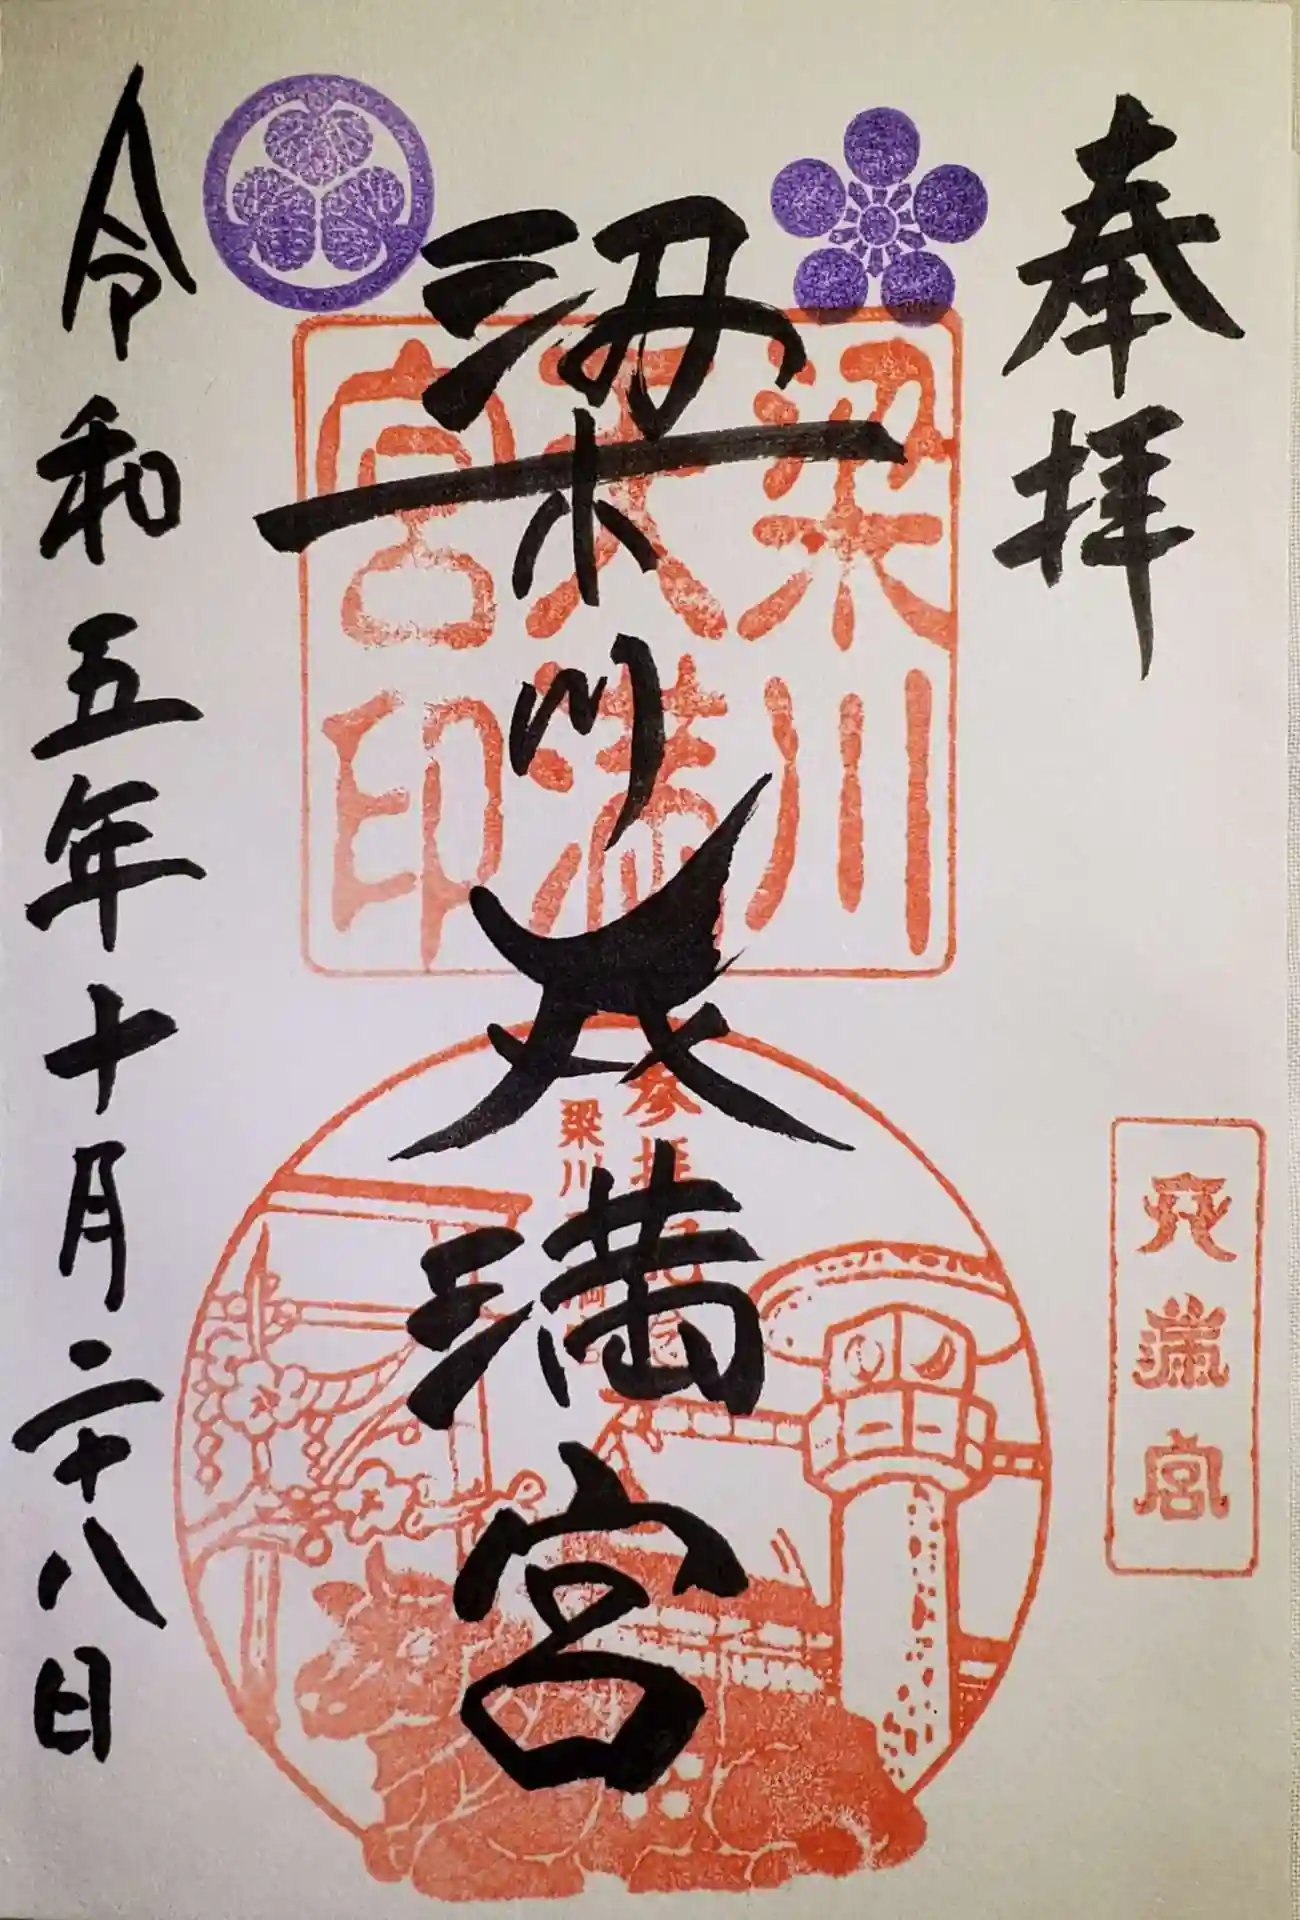 奉拝
天満宮
梁川天満宮
梁川
天満
宮印
参拝記念
梁川天満宮
令和五年十月二十八日